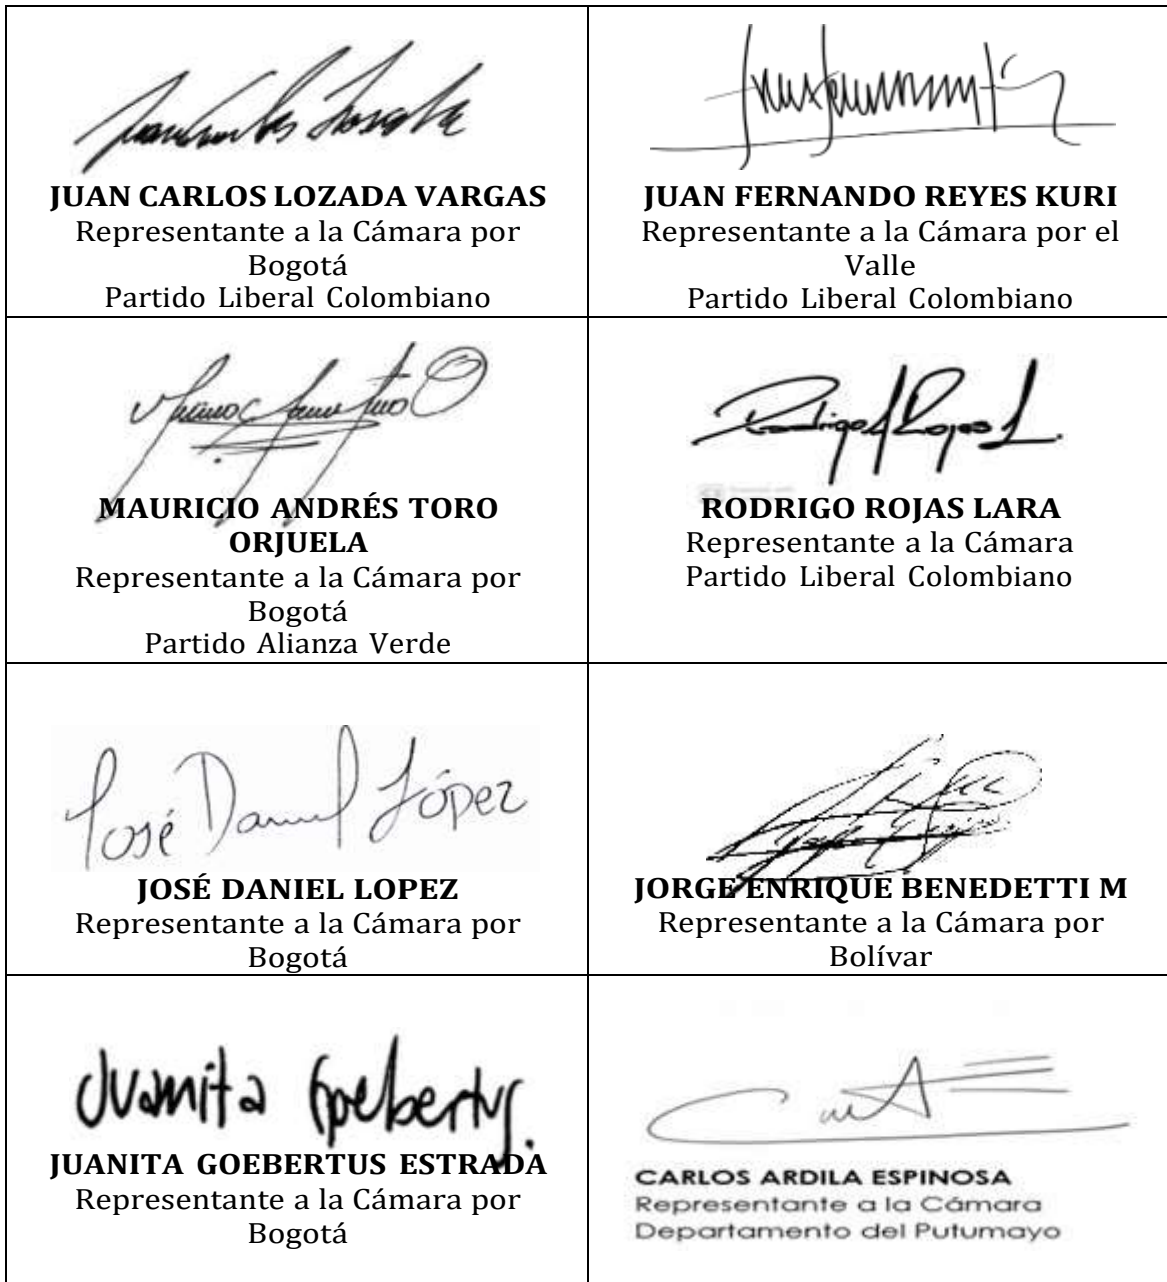 Juan Carlos Lozada
JUAN CARLOS LOZADA VARGAS
Representante a la Cámara por
Bogotá
Partido Liberal Colombiano
JUAN FERNANDO REYES KURI
Representante a la Cámara por el
Valle
Partido Liberal Colombiano
MAURICIO ANDRÉS TORO
ORJUELA
Representante a la Cámara por
Bogotá
Partido Alianza Verde
Rodrigo Rojas L.
RODRIGO ROJAS LARA
Representante a la Cámara
Partido Liberal Colombiano
José Daniel López
JOSÉ DANIEL LOPEZ
Representante a la Cámara por
Bogotá
JORGE ENRIQUE BENEDETTI M
Representante a la Cámara por
Bolívar
Juanita Goebertus.
JUANITA GOEBERTUS ESTRADA
Representante a la Cámara por
Bogotá
CARLOS ARDILA ESPINOSA
Representante a la Cámara
Departamento del Putumayo